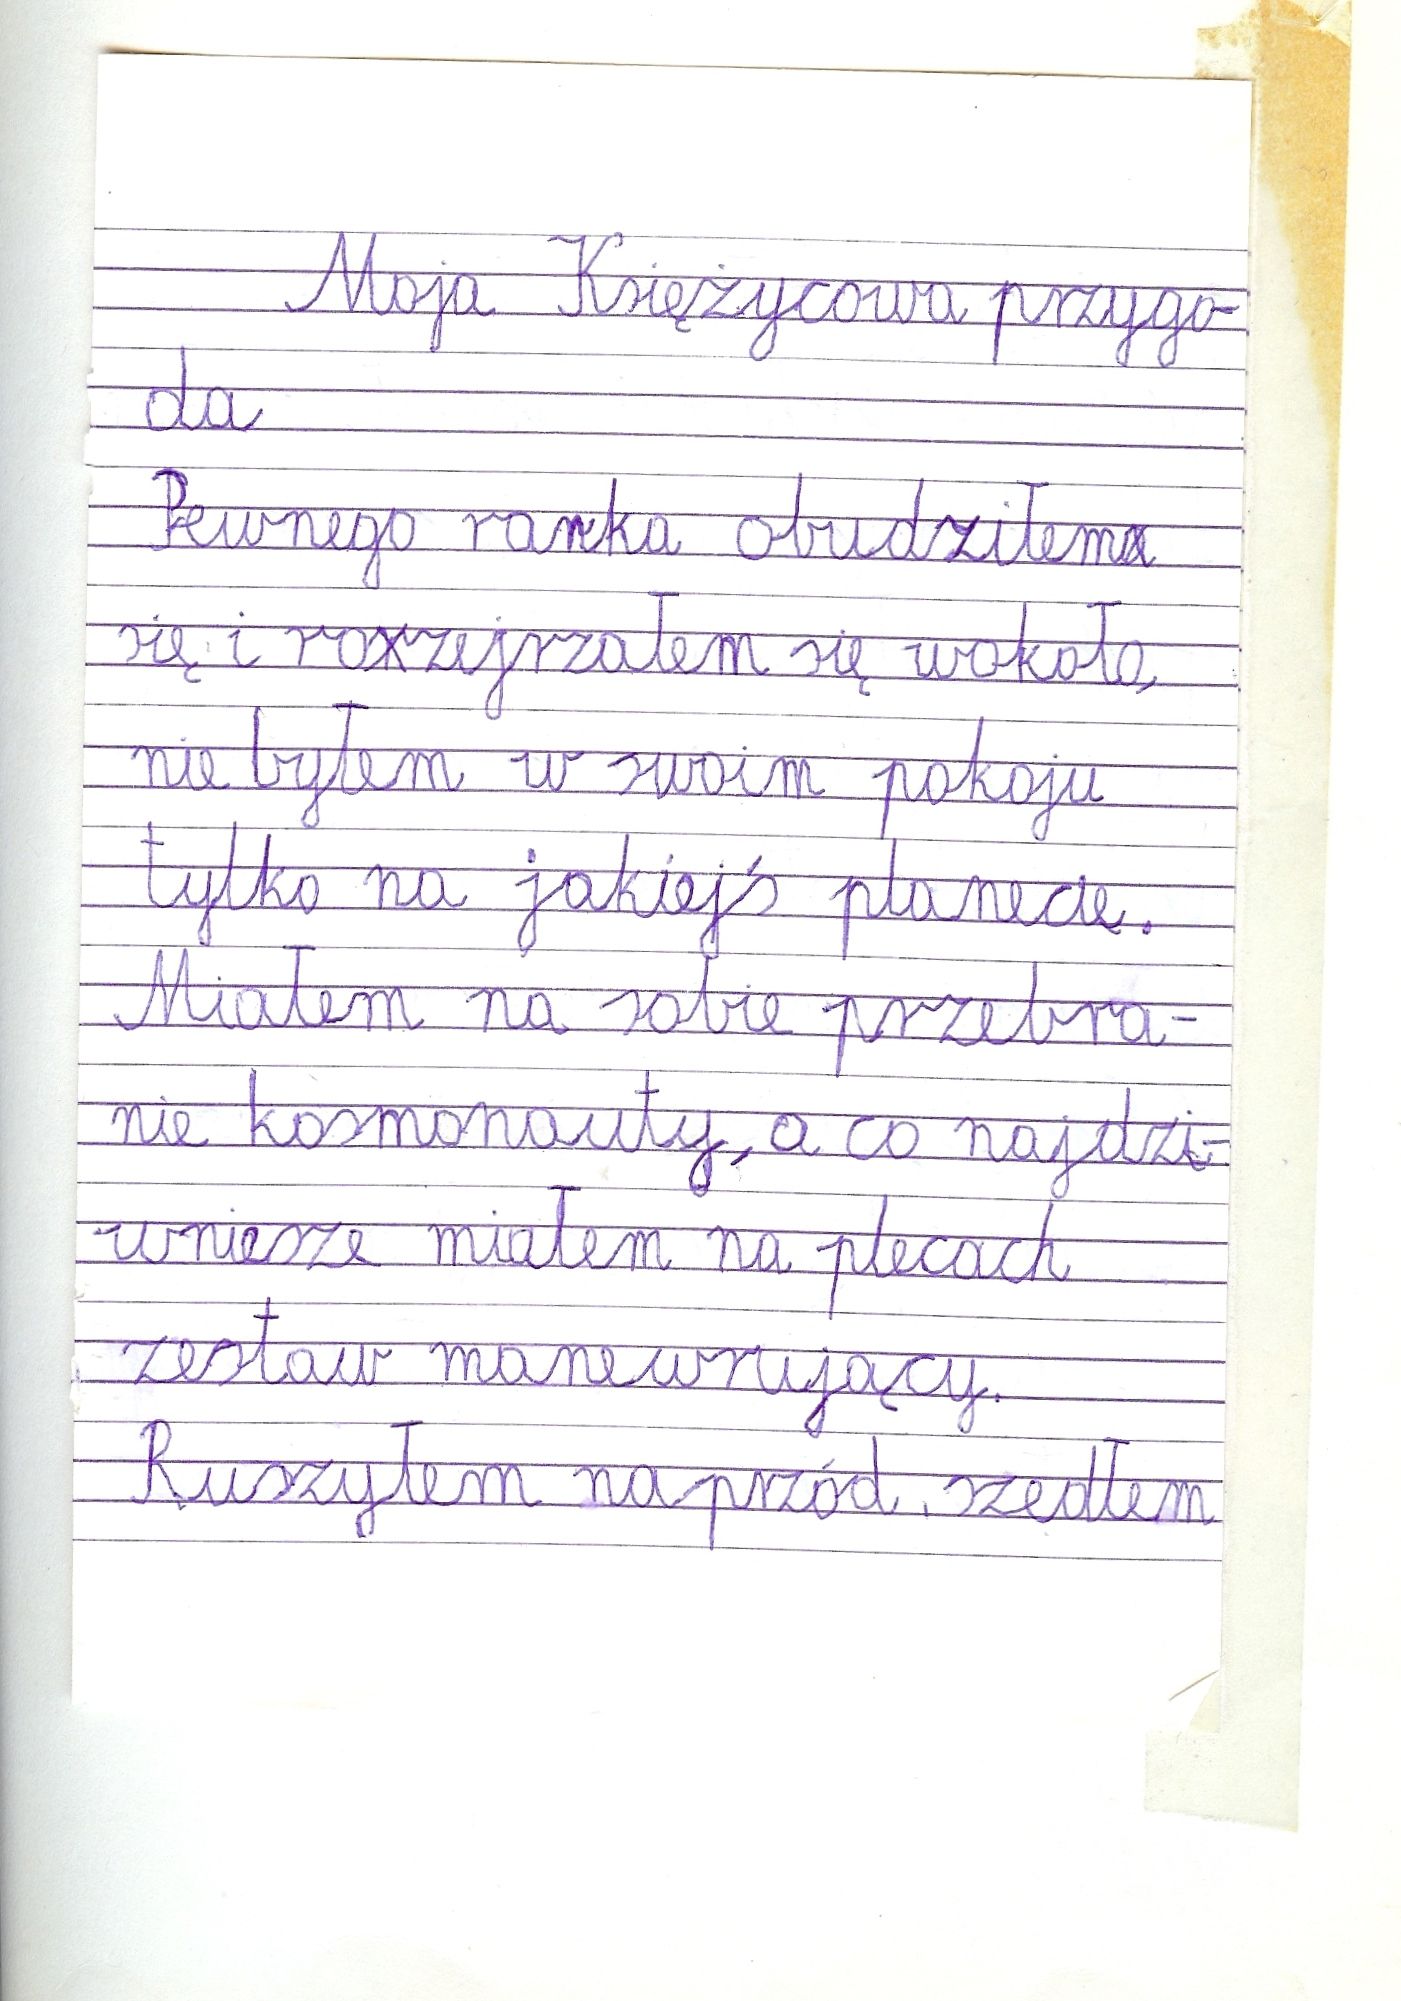 Moja Księżycowa przygo-
da
Pewnego ranka obudziłem
się i rozejrzałem się wokoło,
nie byłem w swoim pokoju
tylko na jakiejś planecie.
Miałem na sobie przebra-
nie kosmonauty, a co najdzi-
wniesze miałem na plecach
zestaw manewrujący.
Ruszyłem naprzód, szedłem